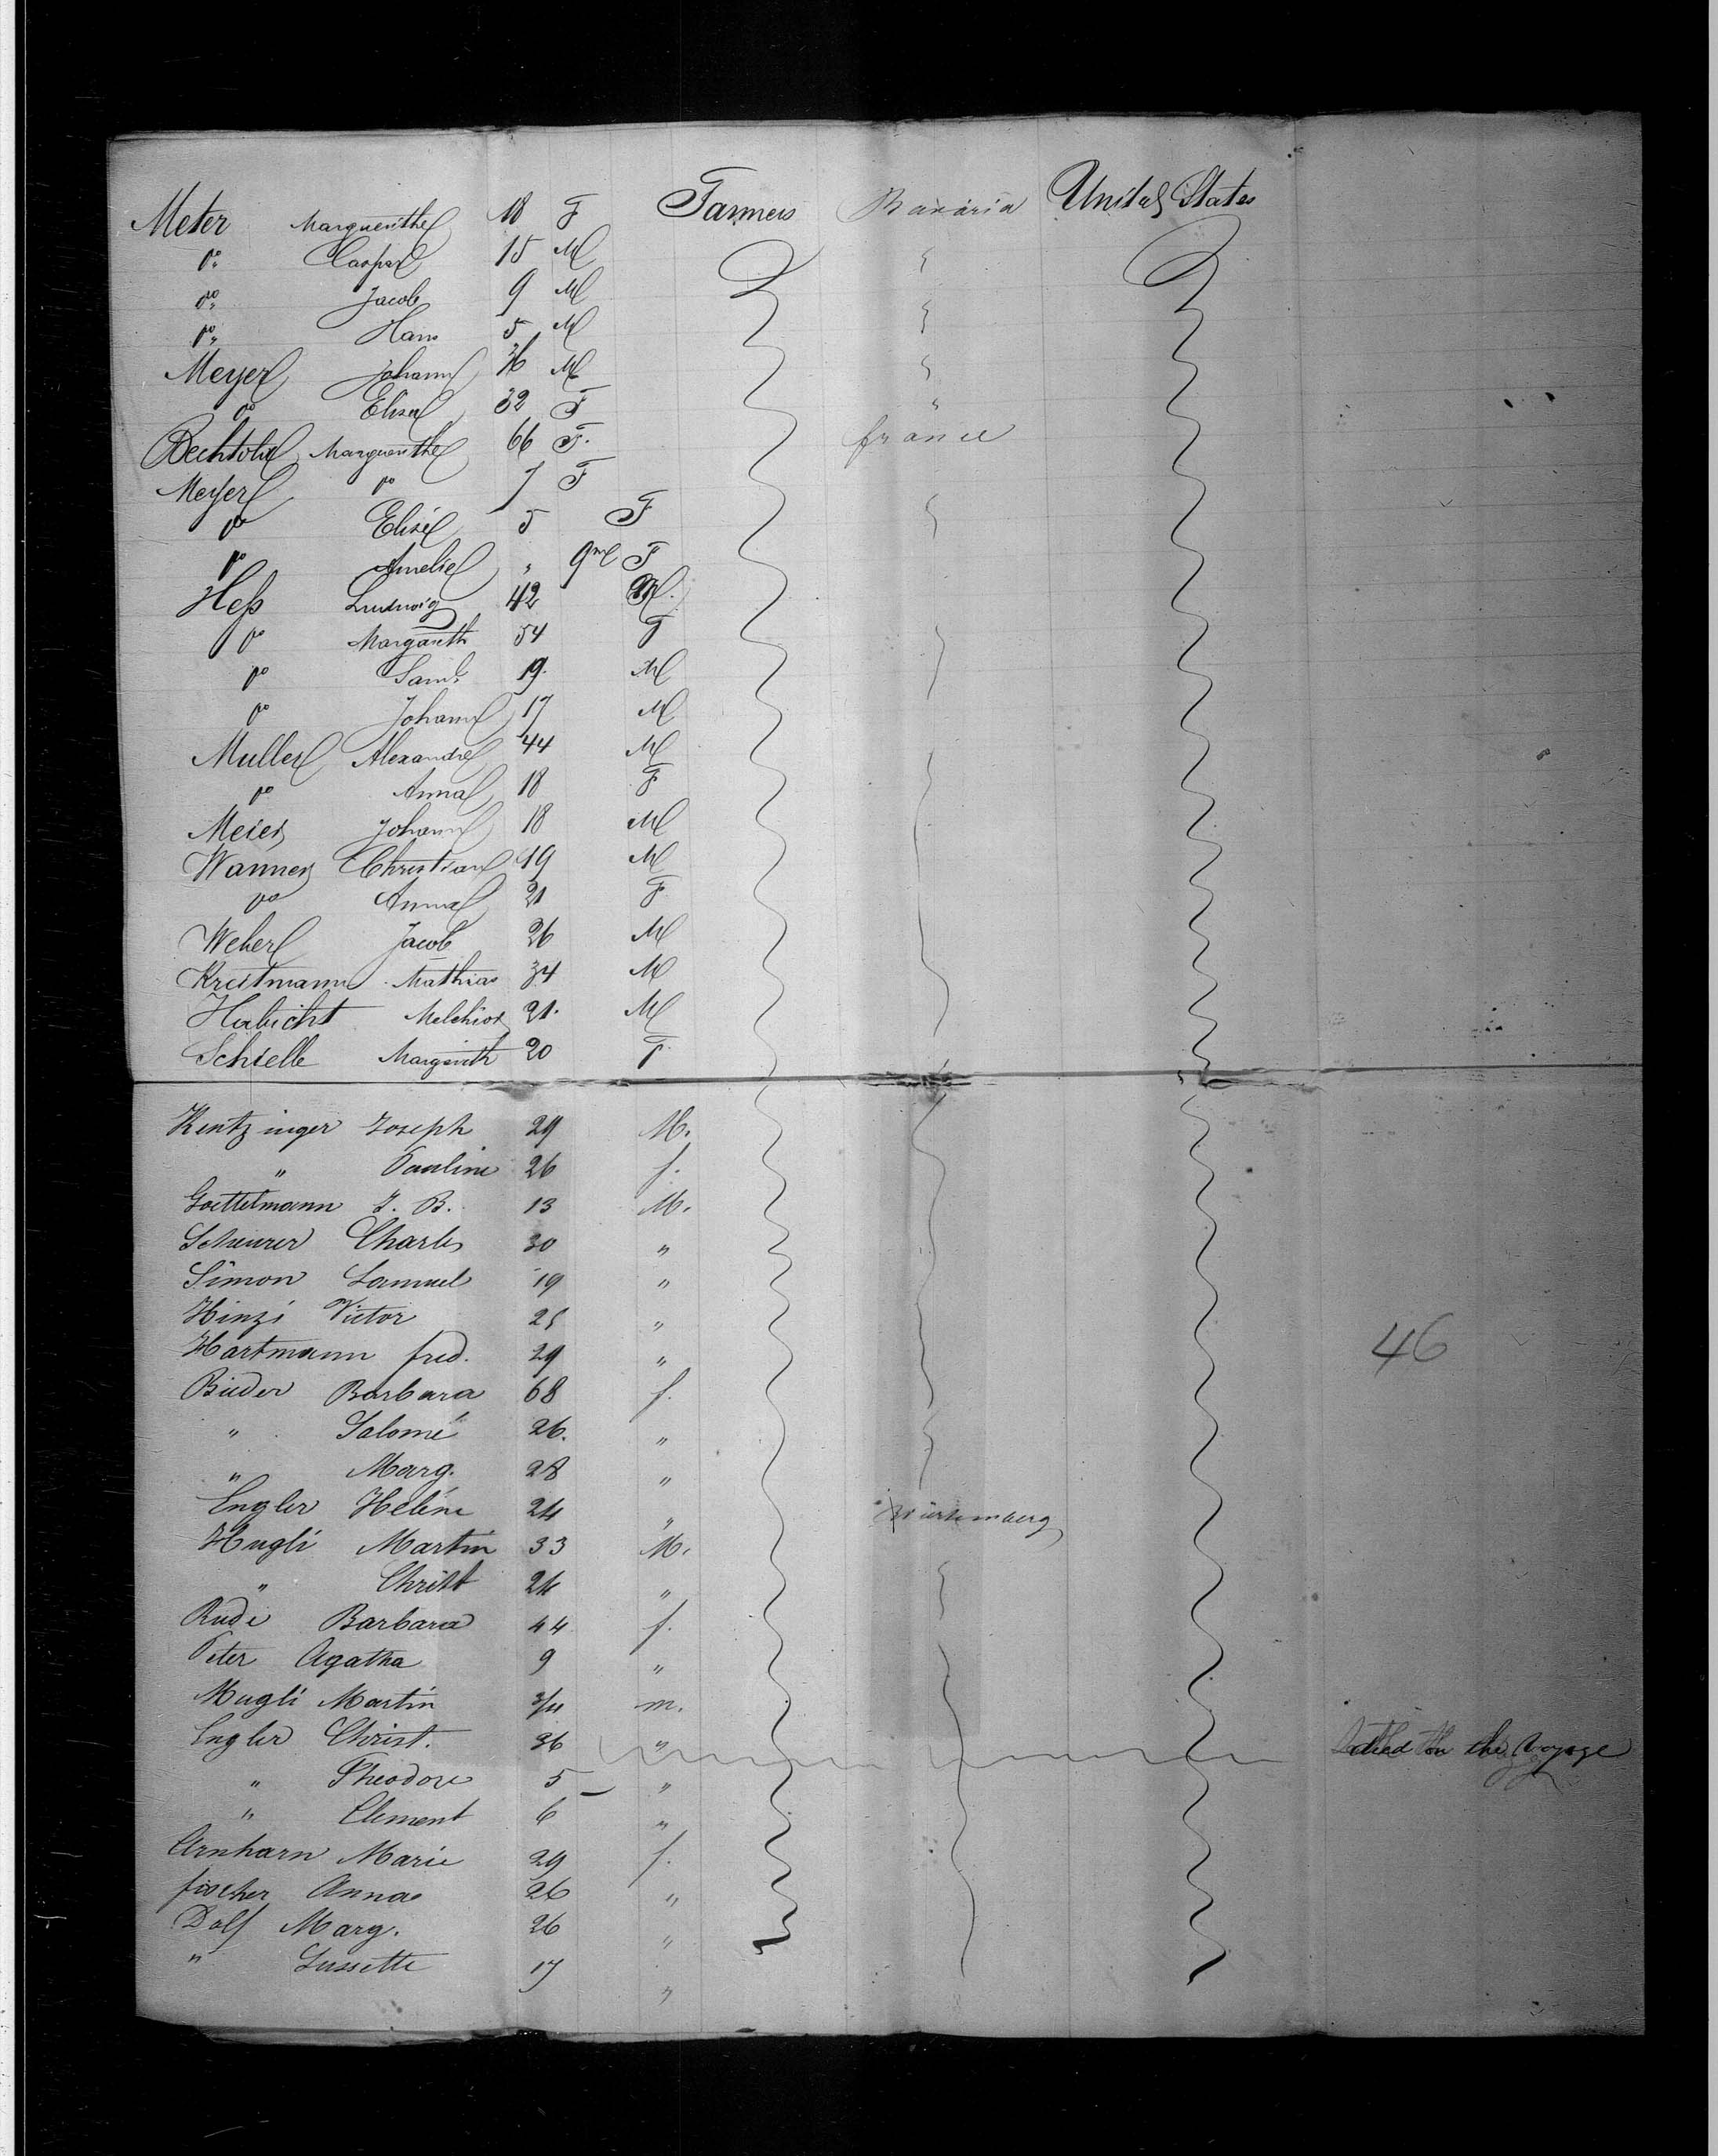 Meter Marguerithe 18 F Farmers Bavaria United States
do Caspar 15 M
do Jacob 9 M
do Hans 5 M
Meyer Johann 36 M
do Elise 32 F "
Bechtold Marguerithe 66 F. france
Meyer do 7 F
do Elise 5 F
do Amelie " 9m F
Heß Ludwig 42 M.
do Margareth 54 F
do Saml. 19. M
do Johann 17 M
Muller Alexandre 44 M
do Anna 18 F
Meier Johann 18 M
Wanner Christian 49 M
do Anna 21 F
Weber Jacob 26 M
Kreitmann Mathias 34 M
Habicht Melchior 21. M
Schielle Margerith 20 F
Kentzinger Joseph 29 M.
" Pauline 26 f.
Goettelmann J. B. 13 M.
Scheurer Charles 30 "
Simon Samuel 19 "
Hinzi Victor 25 "
Hartmann fred. 29 "
46
Bieder Barbara 68 f.
" Salomé 26. "
" Marg. 28 "
Engler Hélène 24 " Würtemberg
Hugli Martin 33 M.
" Christ 24 "
Rudi Barbara 44 f.
Peter Agatha 9 "
Mugli Martin 3/4 m.
Engler Christ. 36 " died on the Voyage
" Theodore 5 "
" Clement 6 "
Arnharn Marie 29 f.
fischer Anna 26 "
Dolf Marg. 26 "
" Sussette 17 "